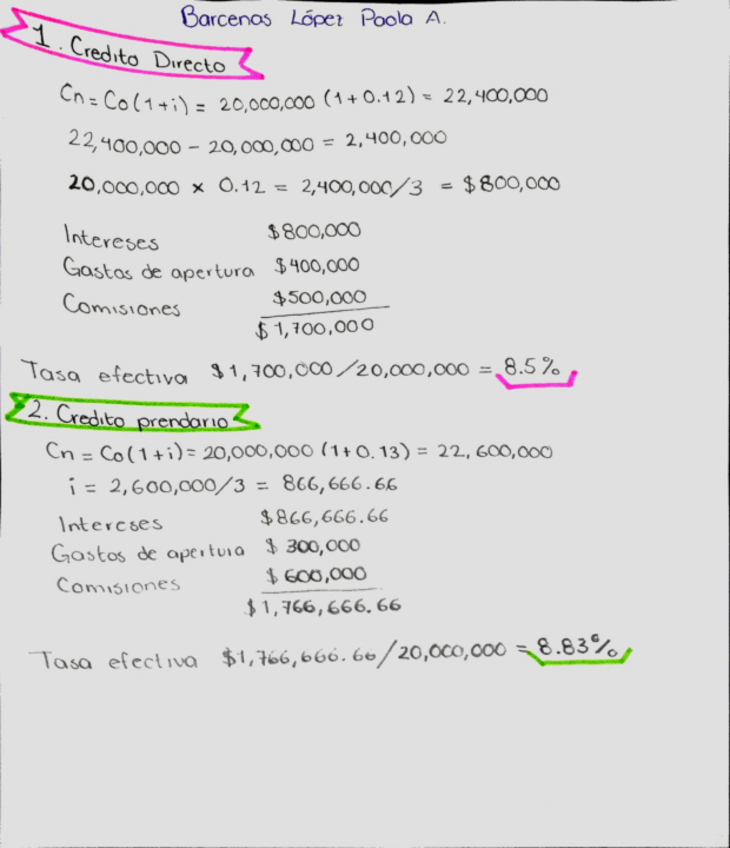 Barcenas López Paola A.
1. Credito Directo
Cn = Co(1+i) = 20,000,000 (1+0.12) = 22,400,000
22,400,000 - 20,000,000 = 2,400,000
20,000,000 x 0.12 = 2,400,000/3 = $800,000
Intereses $800,000
Gastos de apertura $400,000
Comisiones $500,000
$1,700,000
Tasa efectiva $1,700,000/20,000,000 = 8.5%
2. Credito prendario
Cn = Co(1+i) = 20,000,000 (1+0.13) = 22,600,000
i = 2,600,000/3 = 866,666.66
Intereses $866,666.66
Gastos de apertura $300,000
Comisiones $600,000
$1,766,666.66
Tasa efectiva $1,766,666.66/20,000,000 = 8.83%